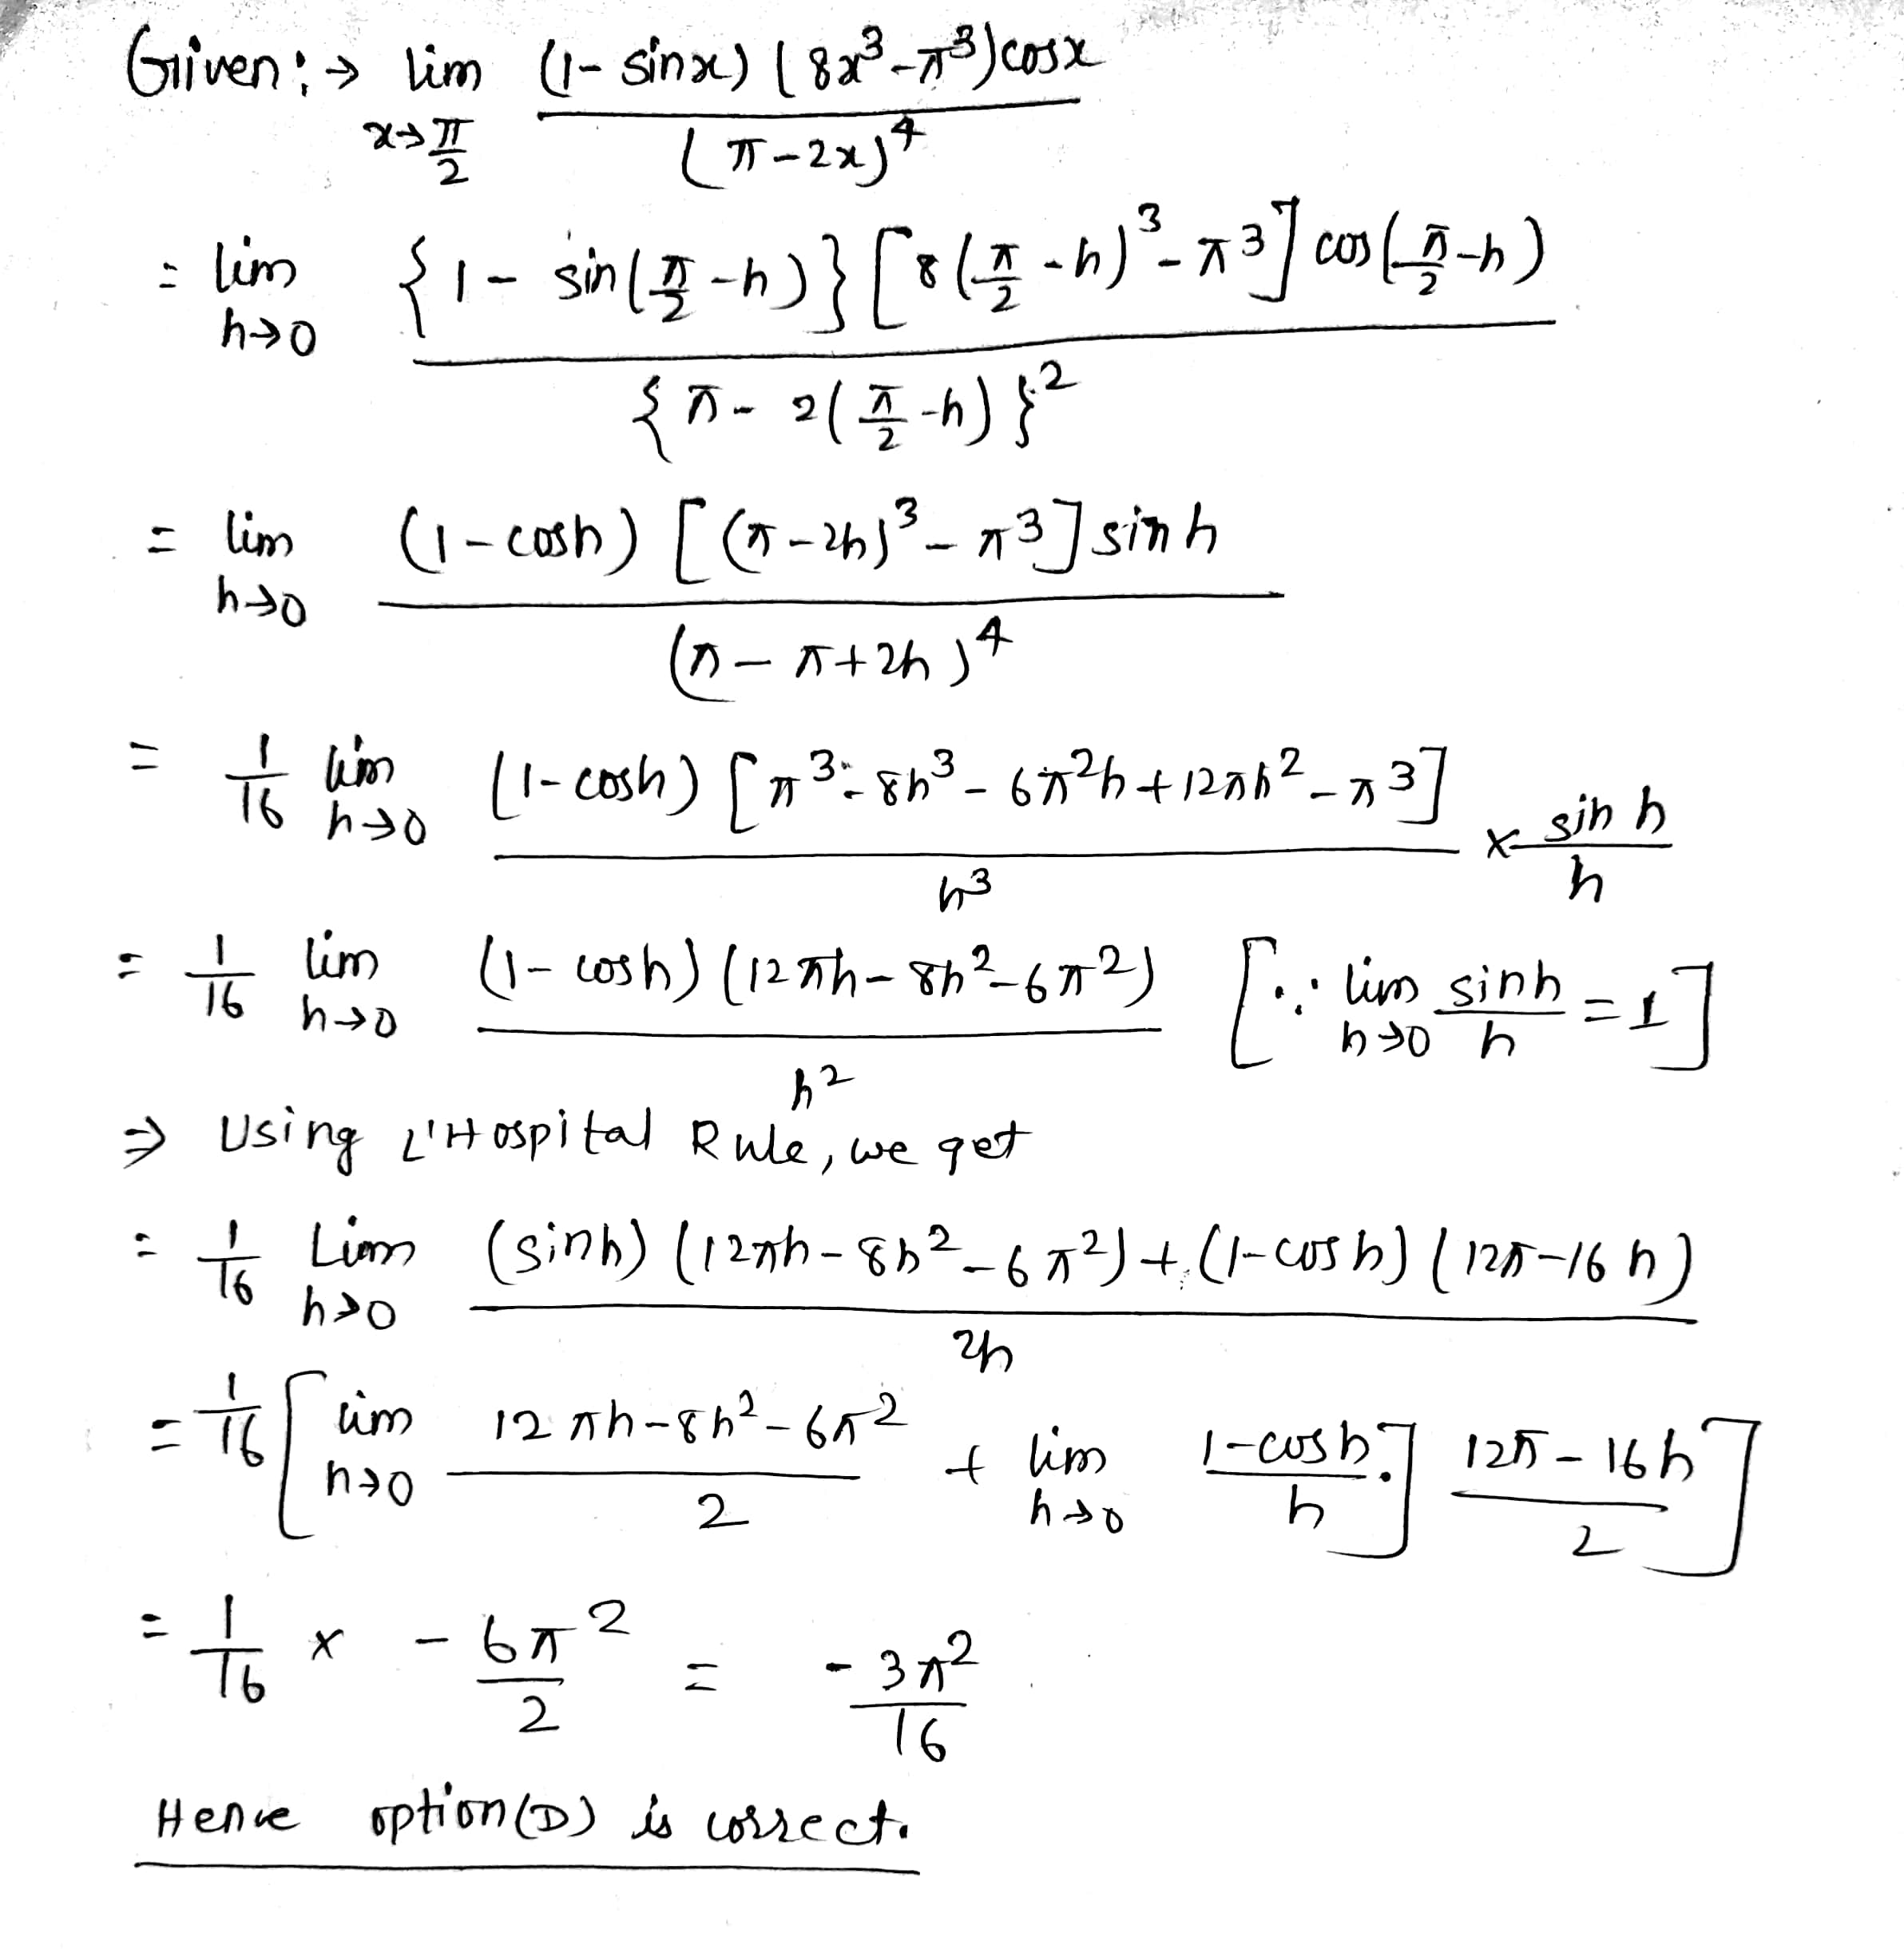 Given :→ lim x→π/2 (1- sinx) (8x³-π³)cosx / (π-2x)⁴
= lim h→0 {1- sin(π/2 -h)} [8(π/2 -h)³-π³] cos(π/2-h) / {π- 2(π/2-h)}²
= lim h→0 (1-cosh) [(π-2h)³-π³] sin h / (π-π+2h)⁴
= 1/16 lim h→0 (1-cosh) [π³-8h³-6π²h+12πh²-π³] / h³ × sin h / h
= 1/16 lim h→0 (1-cosh) (12πh-8h²-6π²) / h² [∵ lim h→0 sinh/h = 1]
⇒ Using L'Hospital Rule, we get
= 1/16 Lim h→0 (sinh) (12πh-8h²-6π²) + (1-cosh) (12π-16h) / 2h
= 1/16 [ lim h→0 12πh-8h²-6π² / 2 + lim h→0 1-cosh / h . ] 12π-16h / 2 ]
= 1/16 × -6π²/2 = -3π²/16
Hence option(D) is correct.